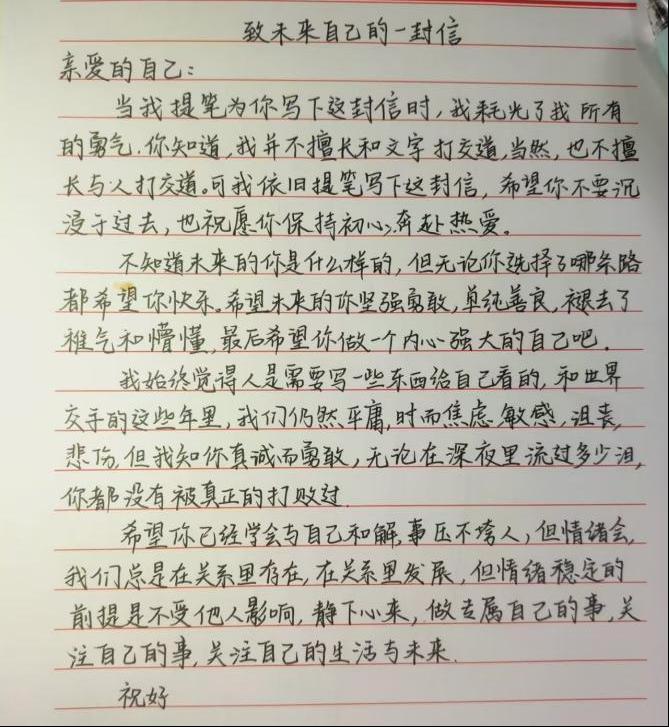 致未来自己的一封信
亲爱的自己：
当我提笔为你写下这封信时，我耗光了我所有
的勇气.你知道,我并不擅长和文字打交道,当然,也不擅
长与人打交道.可我依旧提笔写下这封信，希望你不要沉
浸于过去,也祝愿你保持初心,奔赴热爱。
不知道未来的你是什么样的,但无论你选择了哪条路
都希望你快乐.希望未来的你坚强勇敢,单纯善良,褪去了
稚气和懵懂,最后希望你做一个内心强大的自己吧.
我始终觉得人是需要写一些东西给自己看的,和世界
交手的这些年里,我们仍然平庸,时而焦虑,敏感,沮丧,
悲伤,但我知你真诚而勇敢,无论在深夜里流过多少泪,
你都没有被真正的打败过.
希望你已经学会与自己和解,事压不垮人,但情绪会,
我们总是在关系里存在,在关系里发展,但情绪稳定的
前提是不受他人影响,静下心来,做专属自己的事,关
注自己的事,关注自己的生活与未来.
祝好